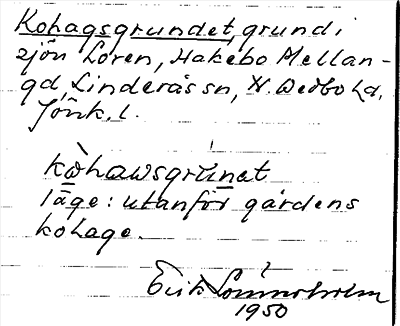 Kohagsgrundet, grund i
sjön Loren, Hakebo Mellan-
gd, Linderås sn, N. Vedbo hd,
Jönk. l.
kωhawsgrünət
läge: utanför gårdens
kohage.
Erik Lommeholm
1950